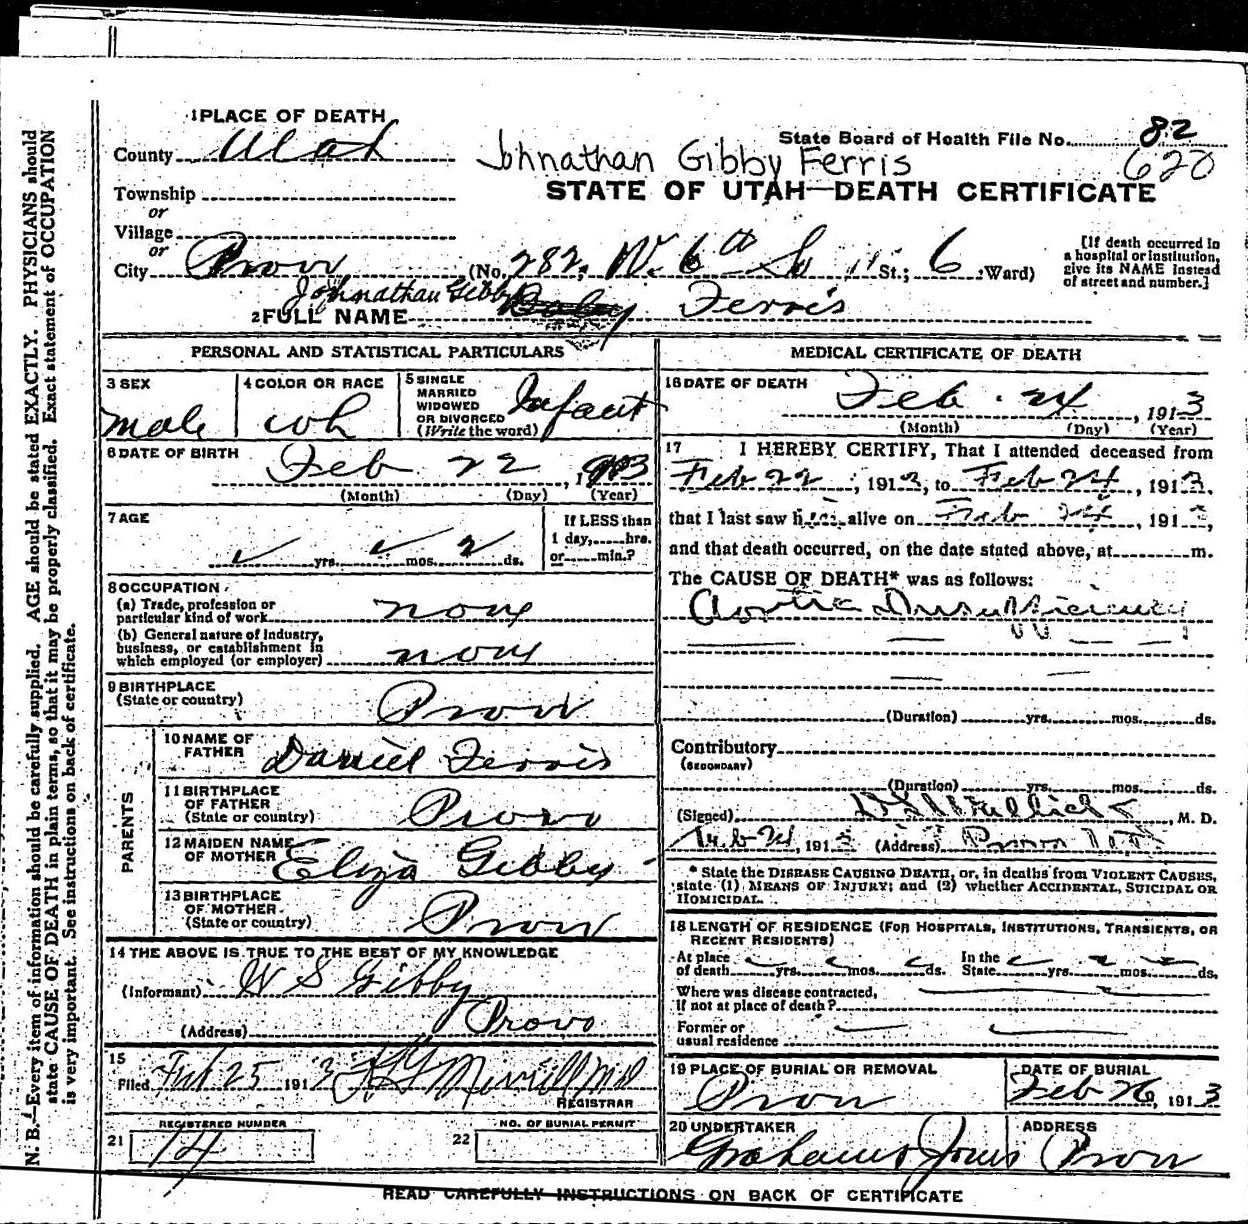 1 PLACE OF DEATH
County Utah
State Board of Health File No. 82
620
Johnathan Gibby Ferris
STATE OF UTAH—DEATH CERTIFICATE
Township
or
Village
or
City Provo (No. 282, W. 6th So St.; 6 Ward)
[If death occurred in a hospital or institution, give its NAME instead of street and number.]
Johnathan Gibby
2 FULL NAME Baby Ferris
PERSONAL AND STATISTICAL PARTICULARS
3 SEX
male
4 COLOR OR RACE
wh
5 SINGLE
MARRIED
WIDOWED
OR DIVORCED
(Write the word)
Infant
6 DATE OF BIRTH
Feb 22, 1913
(Month) (Day) (Year)
7 AGE
yrs. mos. 2 ds.
If LESS than
1 day, hrs.
or min.?
8 OCCUPATION
(a) Trade, profession or
particular kind of work none
(b) General nature of Industry,
business, or establishment in
which employed (or employer) none
9 BIRTHPLACE
(State or country) Provo
PARENTS
10 NAME OF
FATHER Daniel Ferris
11 BIRTHPLACE
OF FATHER
(State or country) Provo
12 MAIDEN NAME
OF MOTHER Eliza Gibby
13 BIRTHPLACE
OF MOTHER
(State or country) Provo
14 THE ABOVE IS TRUE TO THE BEST OF MY KNOWLEDGE
(Informant) W S Gibby
(Address) Provo
15
Filed Feb 25 1913 Merrill MD
REGISTRAR
REGISTERED NUMBER
21 14
NO. OF BURIAL PERMIT
22
MEDICAL CERTIFICATE OF DEATH
16 DATE OF DEATH
Feb. 24, 1913
(Month) (Day) (Year)
17 I HEREBY CERTIFY, That I attended deceased from
Feb 22, 1913, to Feb 24, 1913,
that I last saw him alive on Feb 24, 1913,
and that death occurred, on the date stated above, at m.
The CAUSE OF DEATH* was as follows:
Aortic Insufficiency
(Duration) yrs. mos. ds.
Contributory
(SECONDARY)
(Duration) yrs. mos. ds.
(Signed) , M. D.
Feb 24, 1913 (Address) Provo Utah
* State the DISEASE CAUSING DEATH, or, in deaths from VIOLENT CAUSES,
state (1) MEANS OF INJURY; and (2) whether ACCIDENTAL, SUICIDAL OR
HOMICIDAL.
18 LENGTH OF RESIDENCE (FOR HOSPITALS, INSTITUTIONS, TRANSIENTS, OR
RECENT RESIDENTS)
At place
of death yrs. mos. ds.
In the
State yrs. mos. ds.
Where was disease contracted,
if not at place of death?
Former or
usual residence
19 PLACE OF BURIAL OR REMOVAL
Provo
DATE OF BURIAL
Feb 26, 1913
20 UNDERTAKER
Grahams Jones
ADDRESS
Provo
READ CAREFULLY INSTRUCTIONS ON BACK OF CERTIFICATE
N. B.—Every item of information should be carefully supplied. AGE should be stated EXACTLY. PHYSICIANS should
state CAUSE OF DEATH in plain terms, so that it may be properly classified. Exact statement of OCCUPATION
is very important. See instructions on back of certificate.